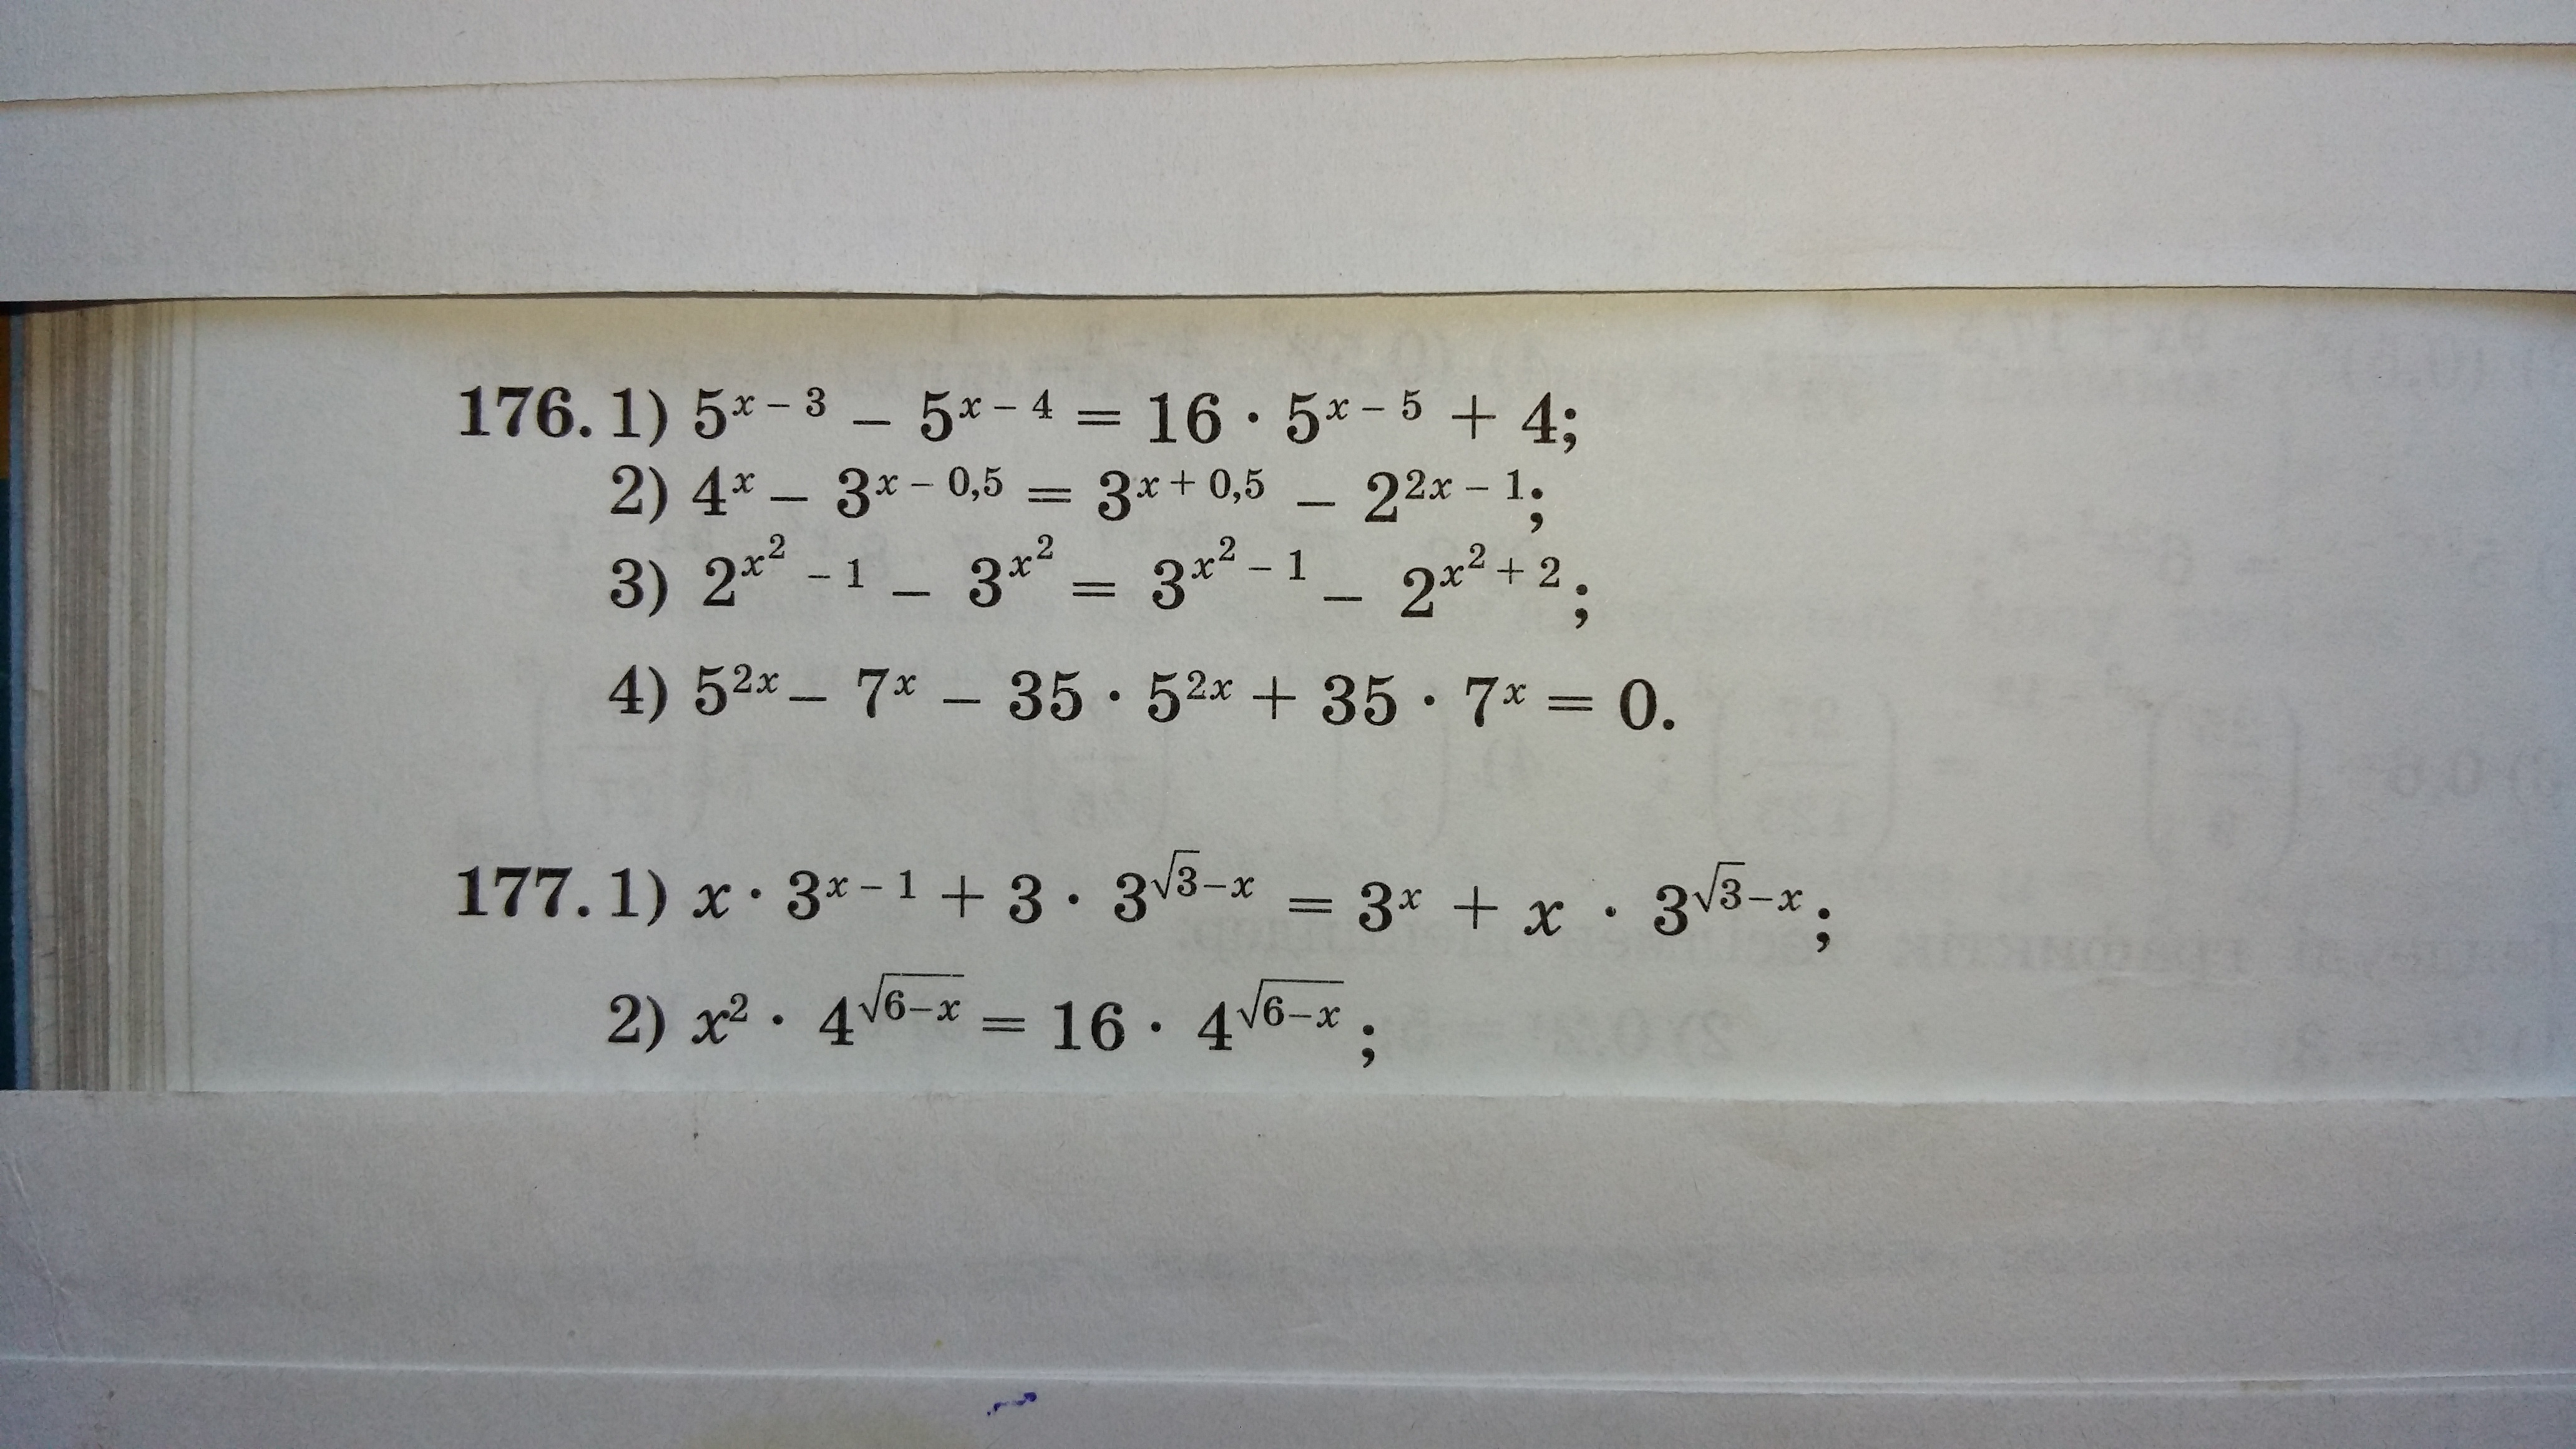 176. 1) 5^{x – 3} – 5^{x – 4} = 16 · 5^{x – 5} + 4;
2) 4^{x} – 3^{x – 0,5} = 3^{x + 0,5} – 2^{2x – 1};
3) 2^{x^{2} – 1} – 3^{x^{2}} = 3^{x^{2} – 1} – 2^{x^{2} + 2};
4) 5^{2x} – 7^{x} – 35 · 5^{2x} + 35 · 7^{x} = 0.
177. 1) x · 3^{x – 1} + 3 · 3^{√3–x} = 3^{x} + x · 3^{√3–x};
2) x^{2} · 4^{√(6–x)} = 16 · 4^{√(6–x)};